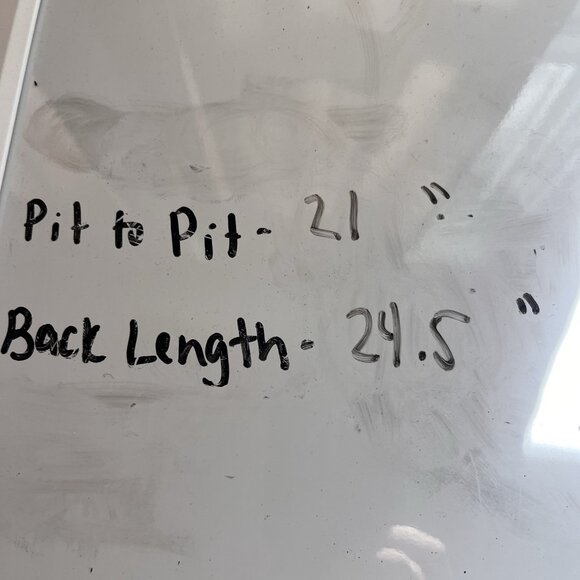 Pit to Pit- 21 "
Back Length- 24.5 "